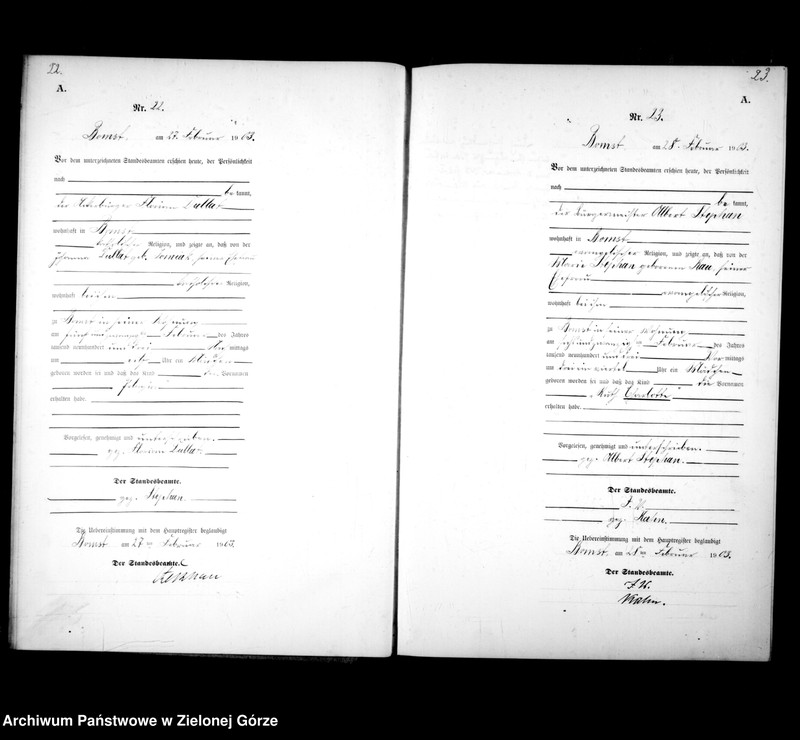 22.
A.
Nr. 22.
Bomst am 27. Februar 1903.
Vor dem unterzeichneten Standesbeamten erschien heute, der Persönlichkeit
nach
be kannt,
der Florian Dulla
wohnhaft in Bomst
katholischer Religion, und zeigte an, daß von der
geb.
katholischer Religion,
wohnhaft bei ihm
zu Bomst in seiner Wohnung
am Februar des Jahres
tausend neunhundert und drei mittags
um Uhr ein Mädchen
geboren worden ist und daß das Kind den Vornamen
erhalten habe.
Vorgelesen, genehmigt und unterschrieben.
gez. Florian Dulla
Der Standesbeamte.
gez. Stephan.
Die Uebereinstimmung mit dem Hauptregister beglaubigt
Bomst am 27ten Februar 1903.
Der Standesbeamte.
Stephan
23.
A.
Nr. 23.
Bomst am 28. Februar 1903.
Vor dem unterzeichneten Standesbeamten erschien heute, der Persönlichkeit
nach
be kannt,
der Bürgermeister Albert Stephan
wohnhaft in Bomst
evangelischer Religion, und zeigte an, daß von der
Marie Stephan geborenen Rau, seiner
Ehefrau
evangelischer Religion,
wohnhaft bei ihm
zu Bomst in seiner Wohnung
am Februar des Jahres
tausend neunhundert und drei Vor mittags
um drei ein viertel Uhr ein Mädchen
geboren worden ist und daß das Kind die Vornamen
Ruth Charlotte
erhalten habe.
Vorgelesen, genehmigt und unterschrieben.
gez. Albert Stephan.
Der Standesbeamte.
I. V.
gez. Kahn.
Die Uebereinstimmung mit dem Hauptregister beglaubigt
Bomst am 28ten Februar 1903.
Der Standesbeamte.
I. V.
Kahn.
Archiwum Państwowe w Zielonej Górze